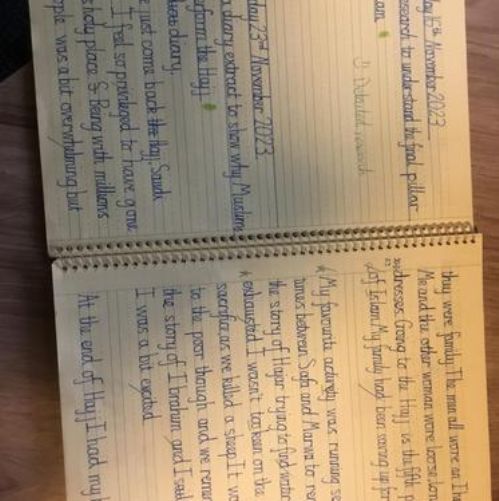 day 16th November 2023
research to understand the final pillar
Detailed research
day 23rd November 2023
a diary extract to show why Muslims
perform the Hajj
diary,
just come back the Hajj, Saudi
I feel so privileged to have gone
holy place & Being with millions
people was a bit overwhelming but
they were family. The men all wore an
Me and the other woman wore loose lo
dresses. Going to the Hajj is the fifth
of Islam. My family had been saving up for
My favourite activity was running se
times between Safa and Marwa to re
the story of Hajar trying to find water
exhausted I wasn't to keen on the
sacrifice as we killed a sheep It w
to the poor though and we reme
the story of Ibrahim and I said
I was a bit
At the end of Hajj I had my h